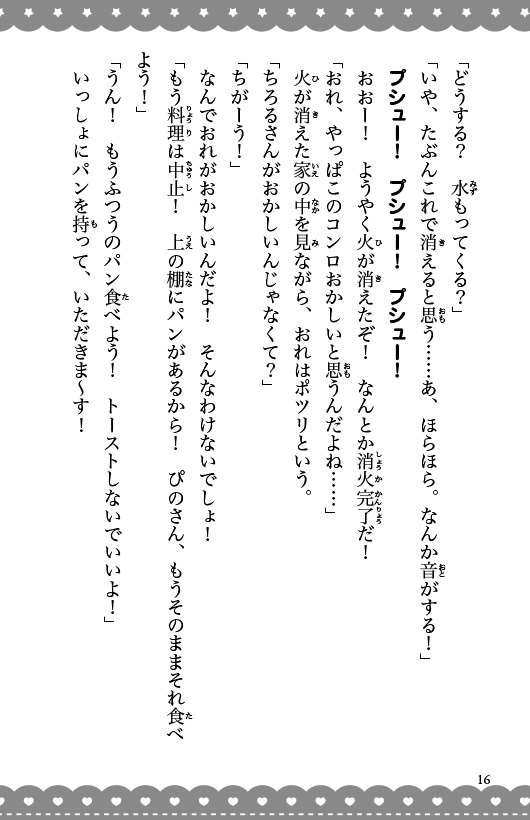 「どうする?　水もってくる?」
「いや、たぶんこれで消えると思う……あ、ほらほら。なんか音がする!」
プシュー!　プシュー!　プシュー!
おおー!　ようやく火が消えたぞ!　なんとか消火完了だ!
「おれ、やっぱこのコンロおかしいと思うんだよね……」
火が消えた家の中を見ながら、おれはポツリという。
「ちろるさんがおかしいんじゃなくて?」
「ちがーう!」
なんでおれがおかしいんだよ!　そんなわけないでしょ!
「もう料理は中止!　上の棚にパンがあるから!　ぴのさん、もうそのままそれ食べ
よう!」
「うん!　もうふつうのパン食べよう!　トーストしないでいいよ!」
いっしょにパンを持って、いただきま〜す!
16